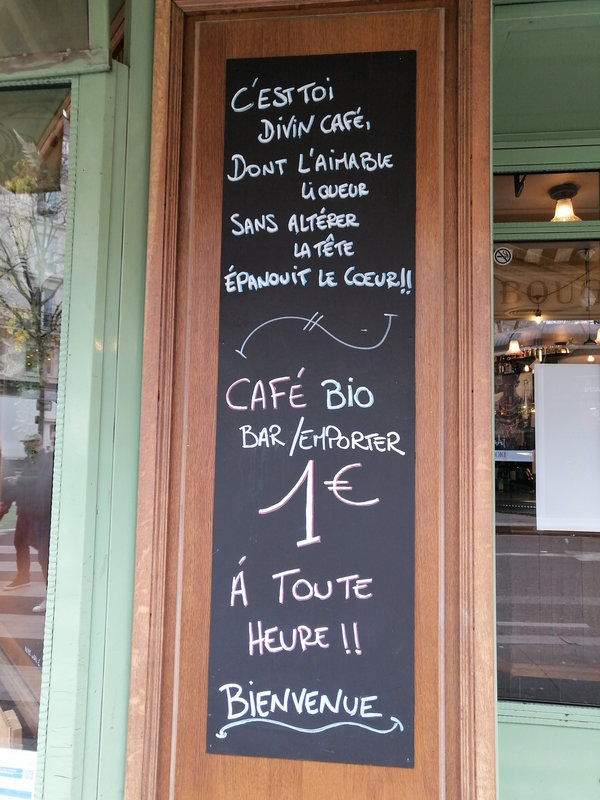 C'EST TOI
DIVIN CAFÉ,
DONT L'AIMABLE
LIQUEUR
SANS ALTÉRER
LA TÊTE
ÉPANOUIT LE COEUR!!
CAFÉ BIO
BAR/EMPORTER
1€
Á TOUTE
HEURE !!
BIENVENUE
BOU